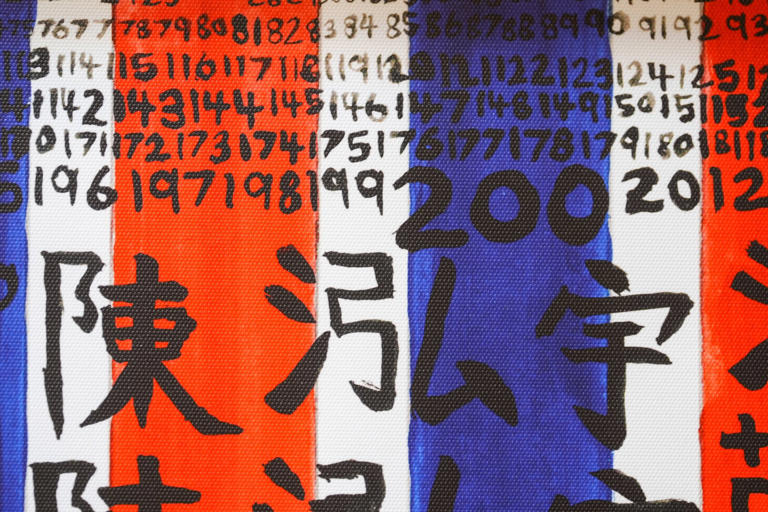 767 77 78 79 80 81 82 83 84 85 86 87 88 89 90 91 92 93
113 114 115 116 117 118 119 120 121 122 123 124 125 12
142 143 144 145 146 147 148 149 150 151 152
170 171 172 173 174 175 176 177 178 179 180 181 18
196 197 198 199 200 201 2
陳泓宇